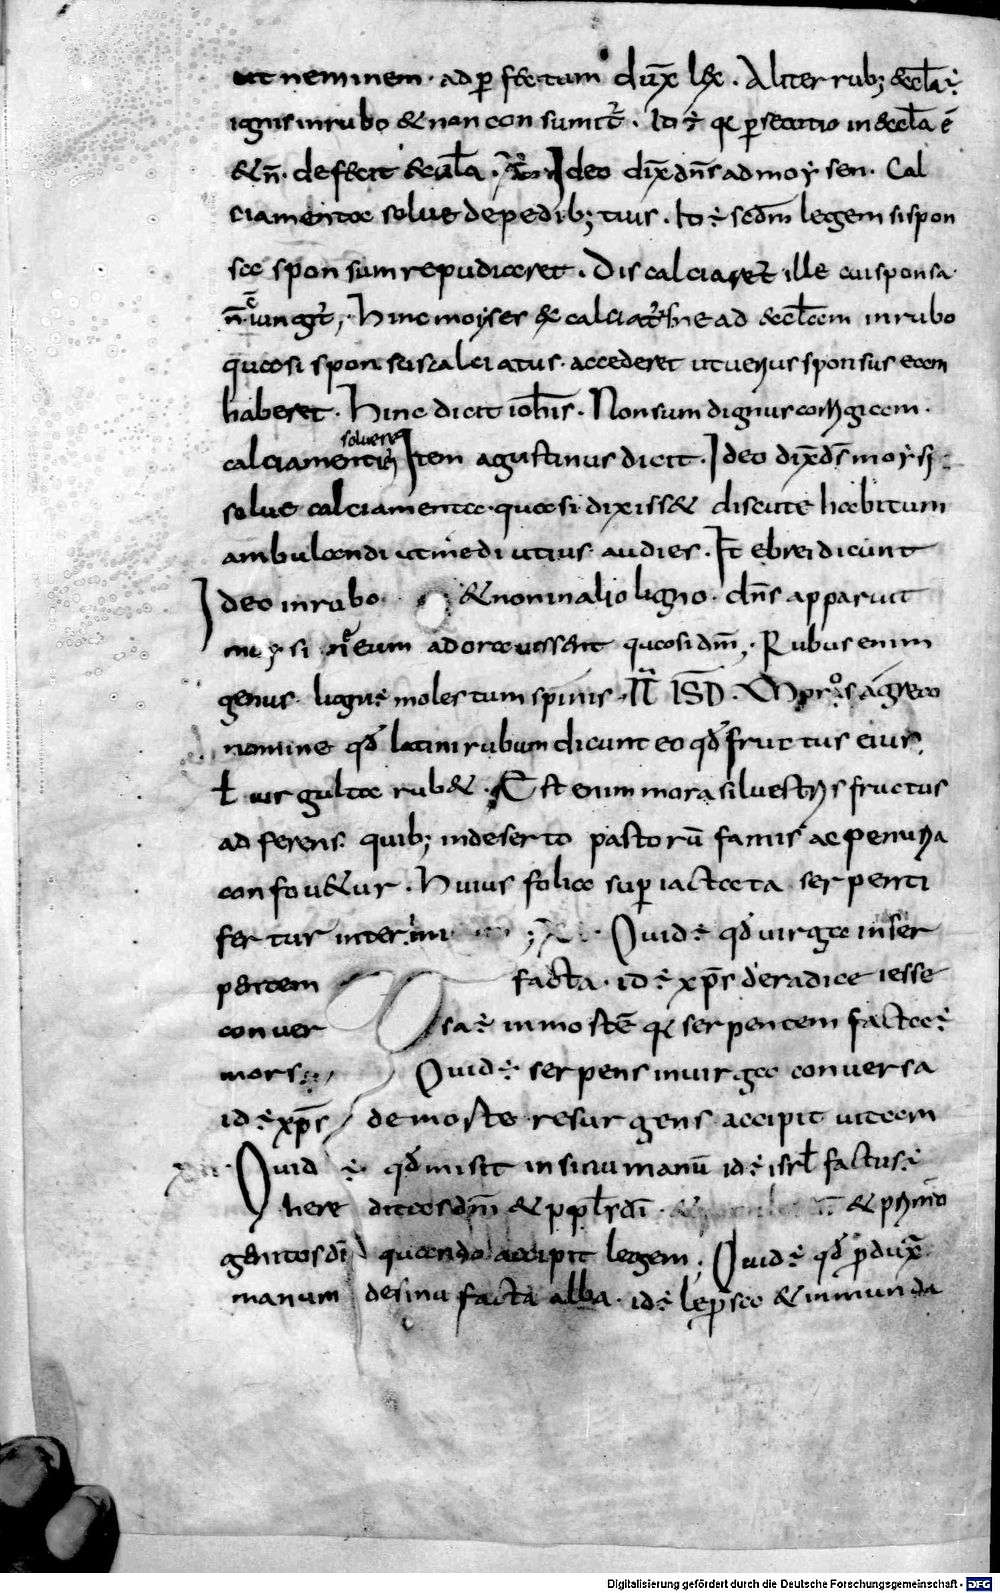 ut neminem · ad perfectam dux̄ lex · Aliter rub; & eccła ÷
ignis in rubo & non consumit̄ · Id ÷ q persecutio in & eccła ē
& n̄ · defecit & eccła · Ideo dix̄ dn̄s ad moysen · Cal
ciamenta solue de pedib; tuis · Id ÷ scdm̄ legem si spon
sa sponsum repudiaret · Discalciaret̄ ille cui sponsa
n̄ iungit̄ · Hinc moyses excalciat̄ ne ad eccłam in rubo
quasi sponsus calciatus · accederet ut uerus sponsus eam
haberet · Hinc dicit ioh̄is · Non sum dignus corrigiam ·
soluere
calciamenti Item agustinus dicit · Ideo dix̄ ds̄ moysi
solue calciamenta · quasi dixiss& discute habitum
ambulandi ut audies · It ebrei dicunt
Ideo in rubo & non in alio ligno · dn̄s apparuit
moysi ne eum adorauissent quasi dm̄ · Rubus enim
genus ligni ÷ molestum spinis · II ISD · agreco
nomine qd̄ latini rubum dicunt eo qd̄ fructus eius
ł uirgulta rub& · Est enim mora siluestris fructus
adferens quib; in deserto pastorū famis ac penuria
confou&ur · Huius folia sup iactata serpenti
fertur interimi Quid ÷ qd̄ uirga in ser
pentem facta · id ÷ xp̄s de radice iesse
conuersa ÷ in mortē q serpentem facta ÷
mors Quid ÷ serpens in uirga conuersa
id ÷ xp̄s de morte resurgens accipit uitam
Quid ÷ qd̄ misit in sinū manū id ÷ isrł factus ÷
hereditas dm̄ & ppłs dī · & primo
genitos dī quando accipit legem · Quid ÷ qd̄ pdux̄
manum de sinu facta alba · id ÷ leprosa & inmunda